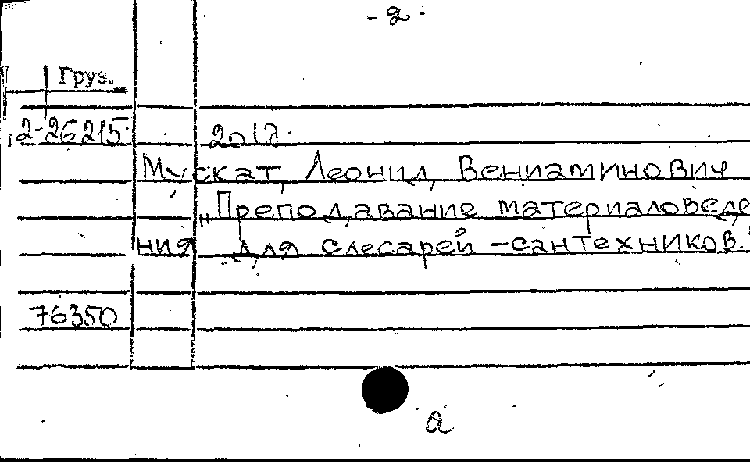 - 2 -
Груз.
2-26215 2017.
Мускат, Леонид Вениаминович
„Преподавание материаловеде
ния для слесарей-сантехников."
76350
а